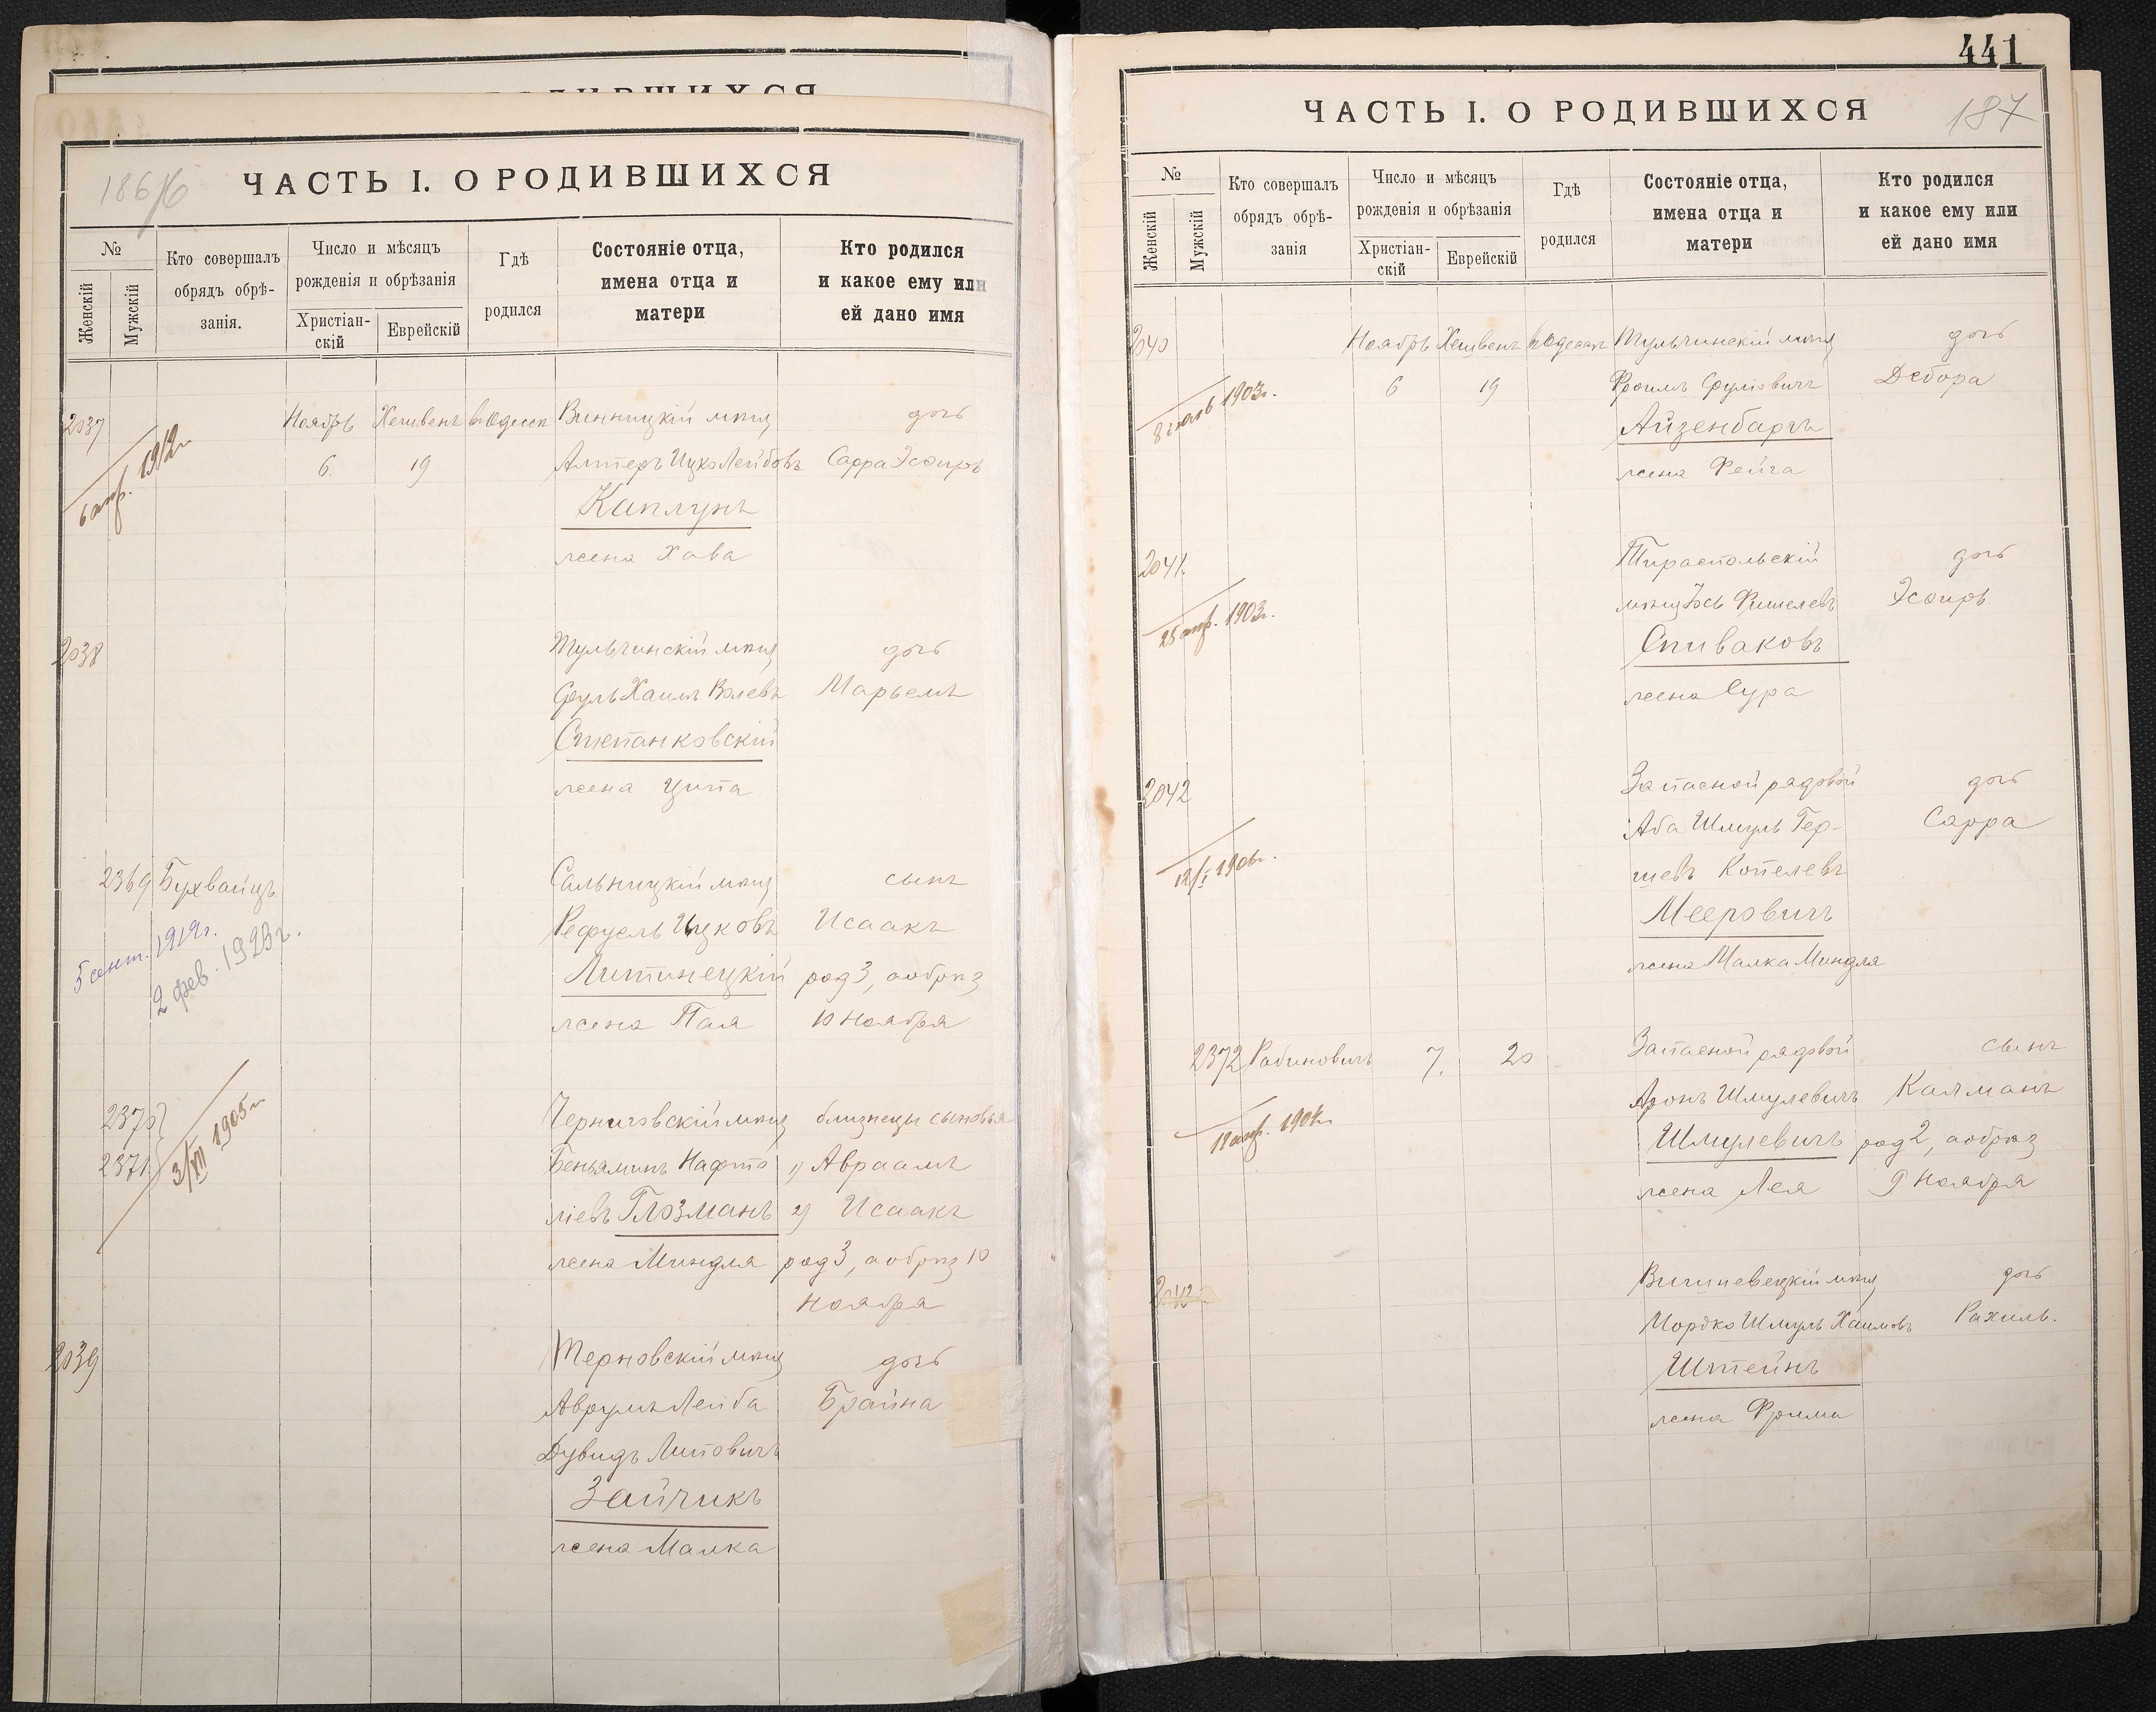 РОДИВШИХСЯ
186/б
ЧАСТЬ I. О РОДИВШИХСЯ
№
Женскій
Мужскій
Кто совершалъ
обрядъ обрѣ-
занія.
Число и мѣсяцъ
рожденія и обрѣзанія
Христіан-
скій
Еврейскій
Гдѣ
родился
Состояніе отца,
имена отца и
матери
Кто родился
и какое ему или
ей дано имя
2037 Ноябрь Хешвенъ въ Одессѣ Винницкій мѣщ дочь
6 апр. 1912 г.
6. 19 Алтеръ Ицко Лейбовъ Сарра Эсѳирь
Каплунъ
жена Хава
2038 Тульчинскій мѣщ дочь
Сруль Хаимъ Волевъ Марьемъ
Степанковскій
жена Ципа
2369 Бухвайцъ Сальницкій мѣщ сынъ
5 сент. 1919 г.
2 фев. 1923 г.
Рефуель Ицковъ Исаакъ
Литинецкій род 3, а обрѣз
жена Пая 10 Ноября
2370 Черниговскій мѣщ близнецы сыновья
2371. Беньяминъ Нафто 1) Авраамъ
3/VII 1905 г.
ліевъ Глозманъ 2) Исаакъ
жена Миндля род 3, а обрѣз 10
Ноября
2039 Терновскій мѣщ дочь
Аврумъ Лейба Брайна
Дувидъ Липовичъ
Зайчикъ
жена Малка
441
ЧАСТЬ I. О РОДИВШИХСЯ
187
№
Женскій
Мужскій
Кто совершалъ
обрядъ обрѣ-
занія
Число и мѣсяцъ
рожденія и обрѣзанія
Христіан-
скій
Еврейскій
Гдѣ
родился
Состояніе отца,
имена отца и
матери
Кто родился
и какое ему или
ей дано имя
2040 Ноябрь Хешвенъ въ Одессѣ Тульчинскій мѣщ дочь
1903 г.
6 19 Фроимъ Сруліовичъ Дебора
Айзенбаргъ
жена Фейга
2041. Тираспольскій дочь
25 апр. 1903 г.
мѣщ Іось Фишелевъ Эсѳирь.
Спиваковъ
жена Сура
2042 Запасной рядовой дочь
Аба Шмуль Гер- Сарра
12/I 1906 г.
шевъ Копелевъ
Мееровичъ
жена Малка Миндля
2372 Рабиновичъ 7. 20 Запасной рядовой сынъ
Аронъ Шмулевичъ Калманъ
Шмулевичъ род 2, а обрѣз
жена Лея 9 Ноября
Вишневецкій мѣщ дочь
Мордко Шмуль Хаимовъ Рахиль.
Штейнъ
жена Фрима